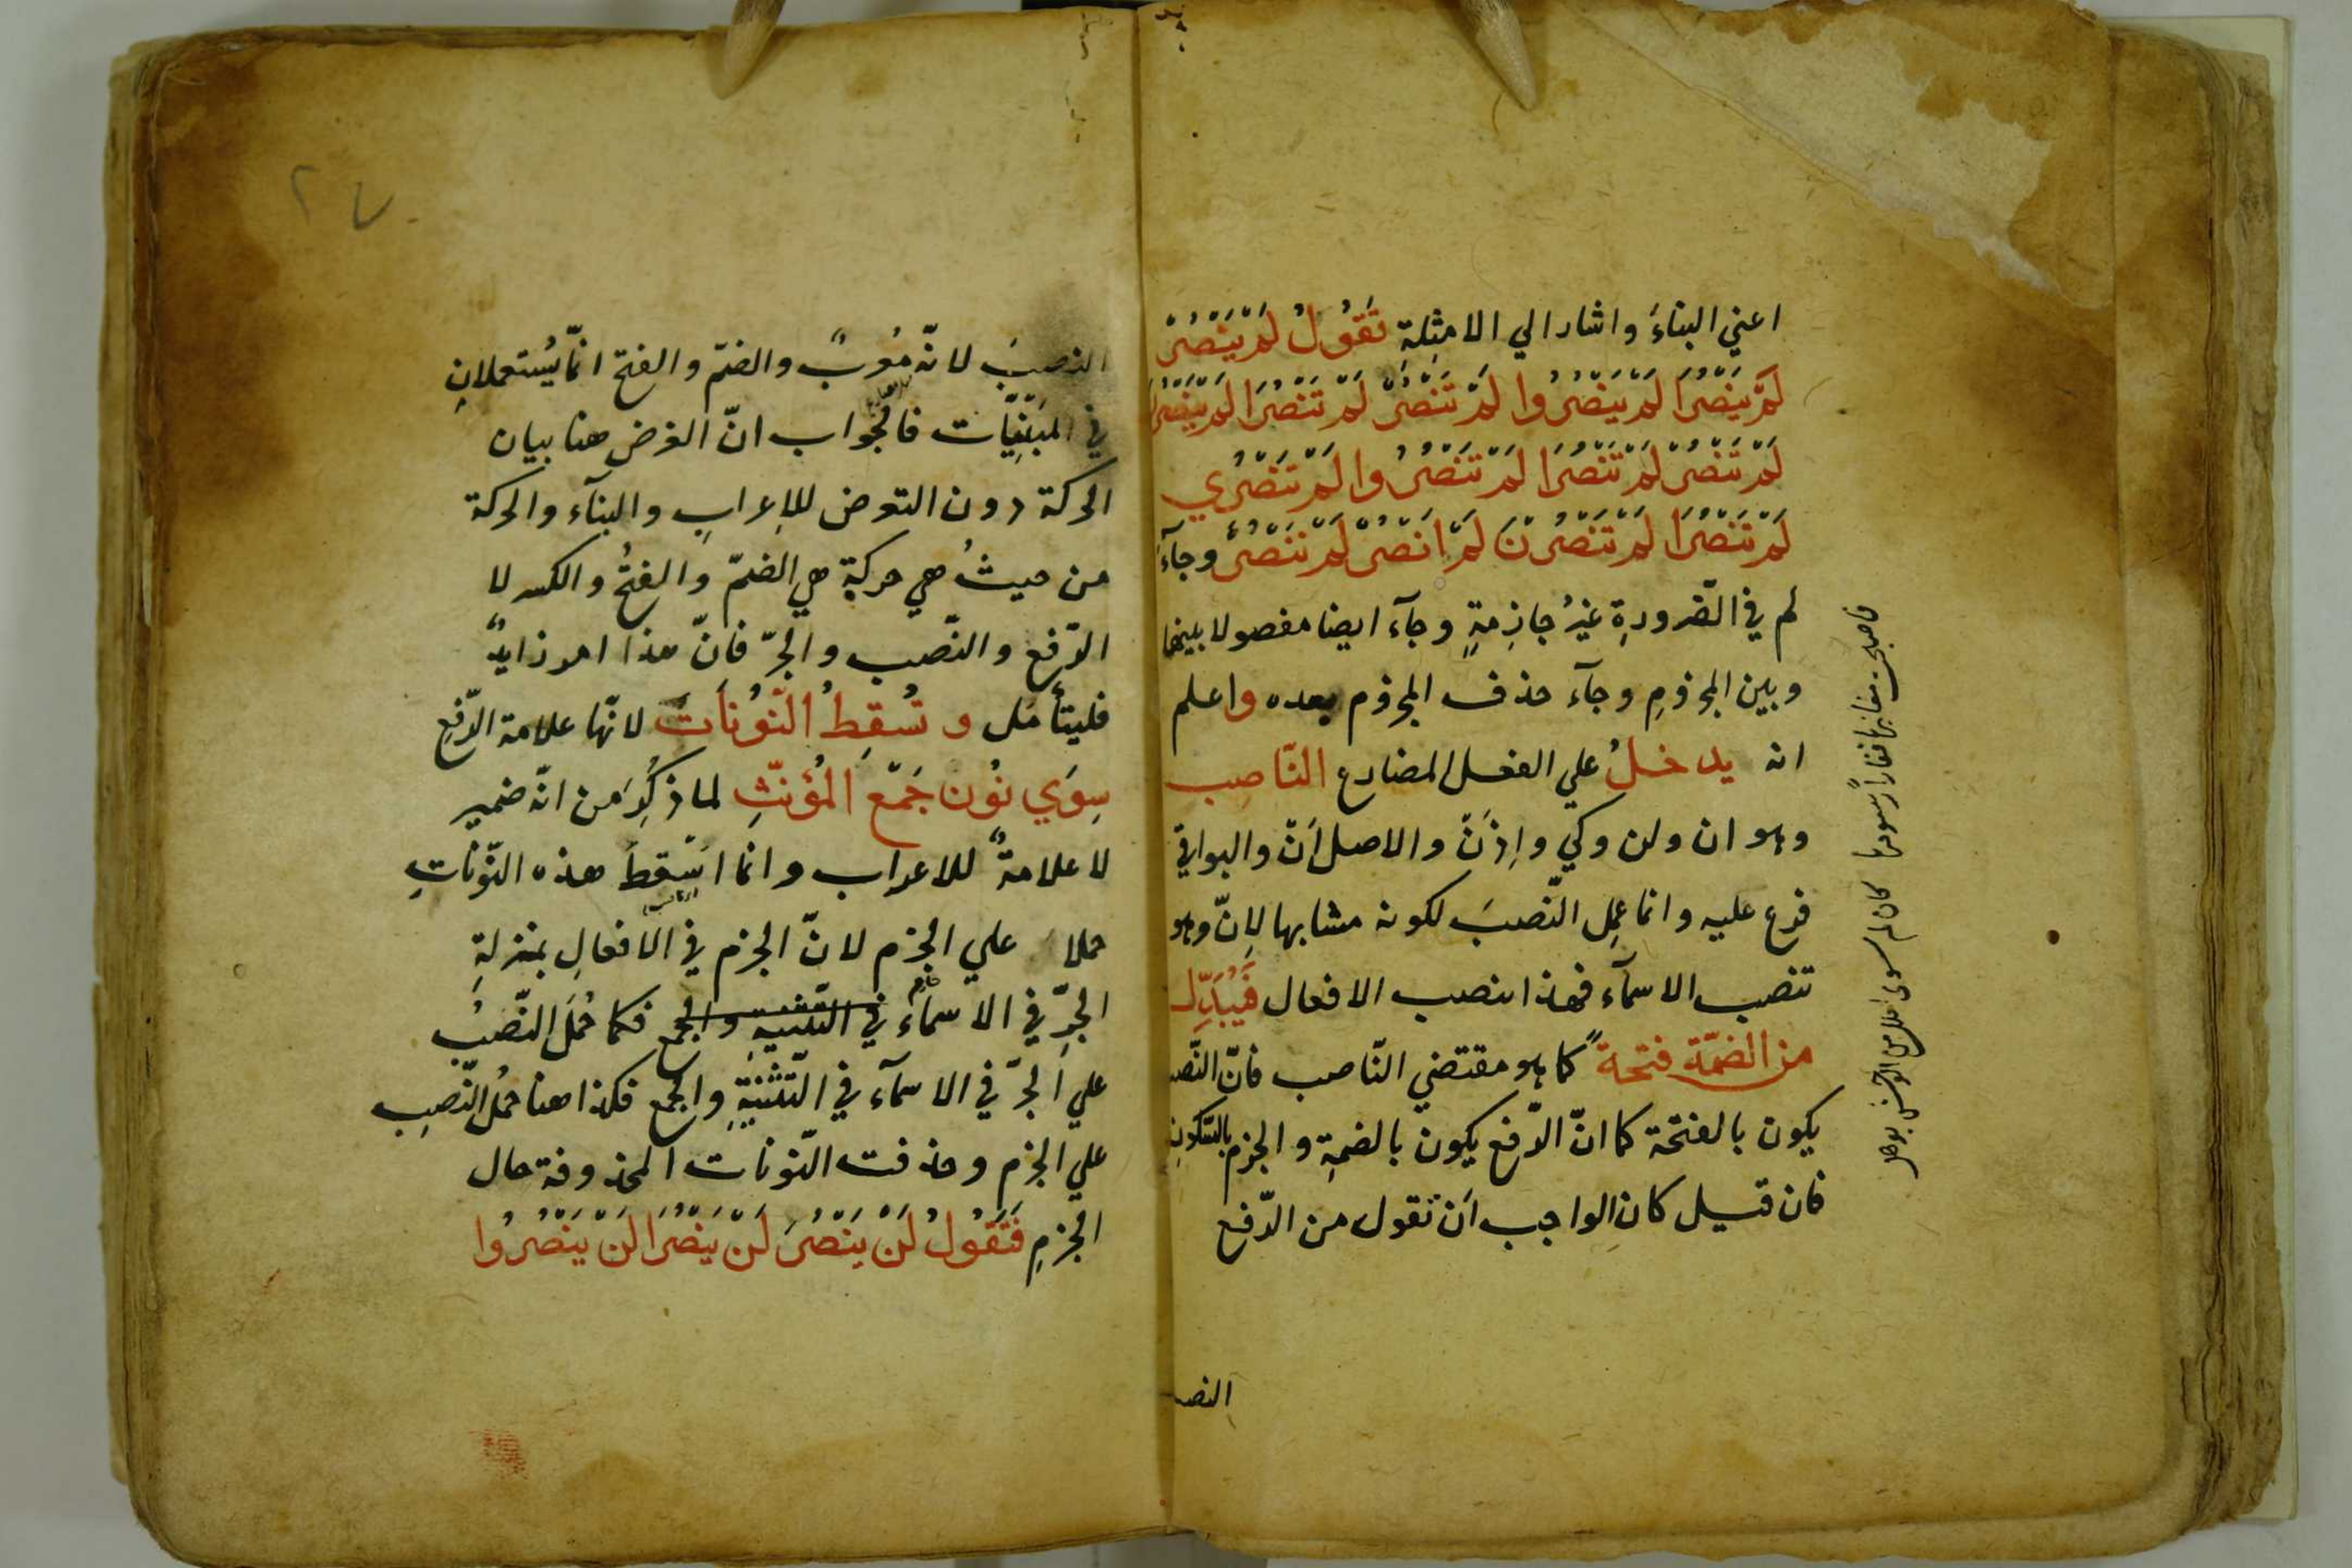 اعني البناءَ واشار الي الامثِلةِ تَقُولُ لَمْ يَنْصُرْ
لَمْ يَنْصُرَا لَمْ يَنْصُرُوا لَمْ تَنْصُرْ لَمْ تَنْصُرَا لَمْ يَنْصُرْنَ
لَمْ تَنْصُرْ لَمْ تَنْصُرَا لَمْ تَنْصُرُوا لَمْ تَنْصُرِي
لَمْ تَنْصُرَا لَمْ تَنْصُرْنَ لَمْ اَنْصُرْ لَمْ نَنْصُرْ وجآءَ
لم في الضّرورةِ غيرُ جازِمةٍ وجآء ايضا مفصولا بينها
وبين المجزومِ وجآء حذف المجزوم بعده واعلم
انه يدخلُ علي الفعل المضارع النّاصِب
وهو ان ولن وكي واِذَنْ والاصل اَنْ والبواقي
فرع عليه وانما عمِل النّصبَ لكونه مشابها لاِنّ وهو
تنصب الاسمآء فهذا ينصب الافعال فَيُبَدِّل
من الضمّة فتحةً كما هو مقتضي النّاصب فانّ النّصب
يكون بالفتحة كما انّ الرّفع يكون بالضمةِ والجزم بالسّكونِ
فان قيل كان الواجب اَن تقول من الرّفع
النصب
النصبَ لانّه مُعربٌ والضمّ والفتح انّما يُستعملانِ
في المَبْنِيّات فالجواب انّ الغرض هنا بيان
الحركة دون التعرض للاِعرابِ والبنآء والحركة
من حيثُ هي حركةٍ هي الضمّ والفتحُ والكسر لا
الرّفع والنّصب والجرّ فانّ هذا امر زايدٌ
فليتأمّل و تُسْقِطُ النّوُنَاتَ لانّها علامة الرّفعِ
سِوَي نُون جَمْعِ المُؤنّثِ لما ذُكِرَ من انّه ضمير
لا علامةٌ للاعراب وانما اَسْقطَ هذه النّونَاتِ
حملا علي الجزم لانّ الجزم في الافعالِ بمنزلةِ
الجرِّ في الاسمآء في التّثنيةِ والجمع فكما حُمل النّصبُ
علي الجرّ في الاسمآء في التّثنيةِ والجمع فكذا هنا حُمل النّصبِ
علي الجزم وحذفت النّونات المحذوفة حال
الجزمِ فَتَقُولُ لَنْ يَنْصُرَ لَنْ يَنْصُرَا لَنْ يَنْصُرُوا